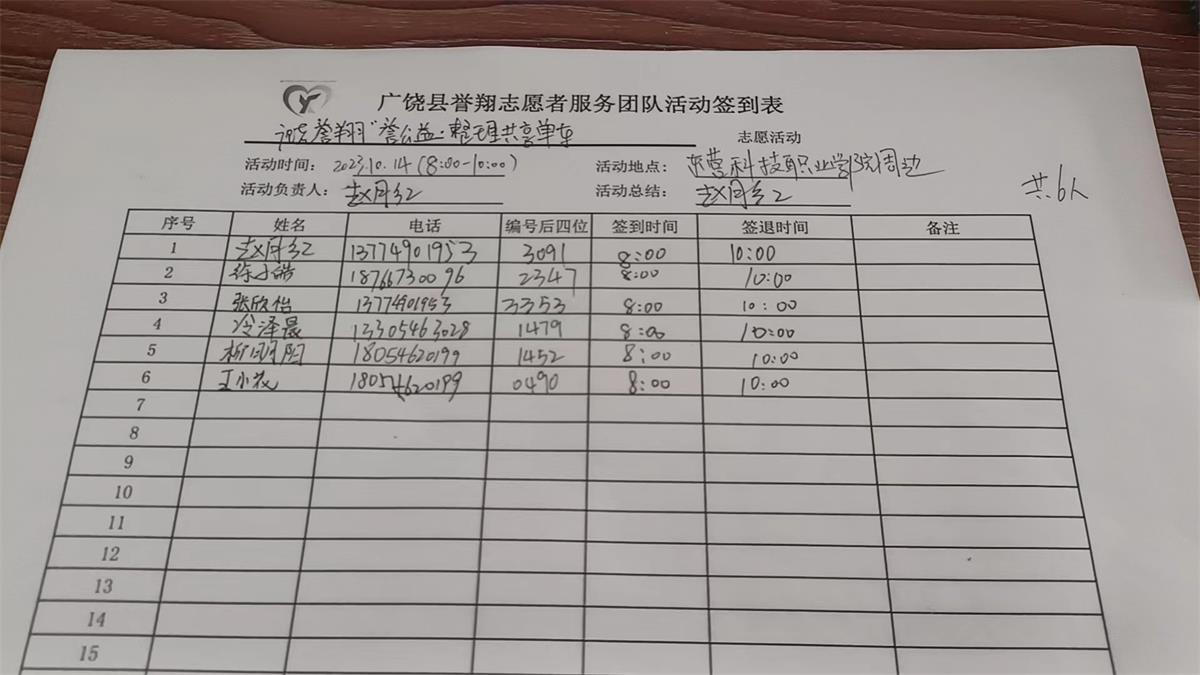 广饶县誉翔志愿者服务团队活动签到表
誉翔"誉公益·整理共享单车 志愿活动
活动时间： 2023.10.14（8:00-10:00） 活动地点： 东营科技职业学院周边
活动负责人： 赵月红 活动总结： 赵月红
共6人
序号 姓名 电话 编号后四位 签到时间 签退时间 备注
1 赵月红 13774901953 3091 8:00 10:00
2 徐小皓 18766730096 2347 8:00 10:00
3 张欣怡 13774901953 3353 8:00 10:00
4 冷泽晨 13305463028 1479 8:00 10:00
5 柳明阳 18054620199 1452 8:00 10:00
6 王小花 18054620199 0490 8:00 10:00
7
8
9
10
11
12
13
14
15